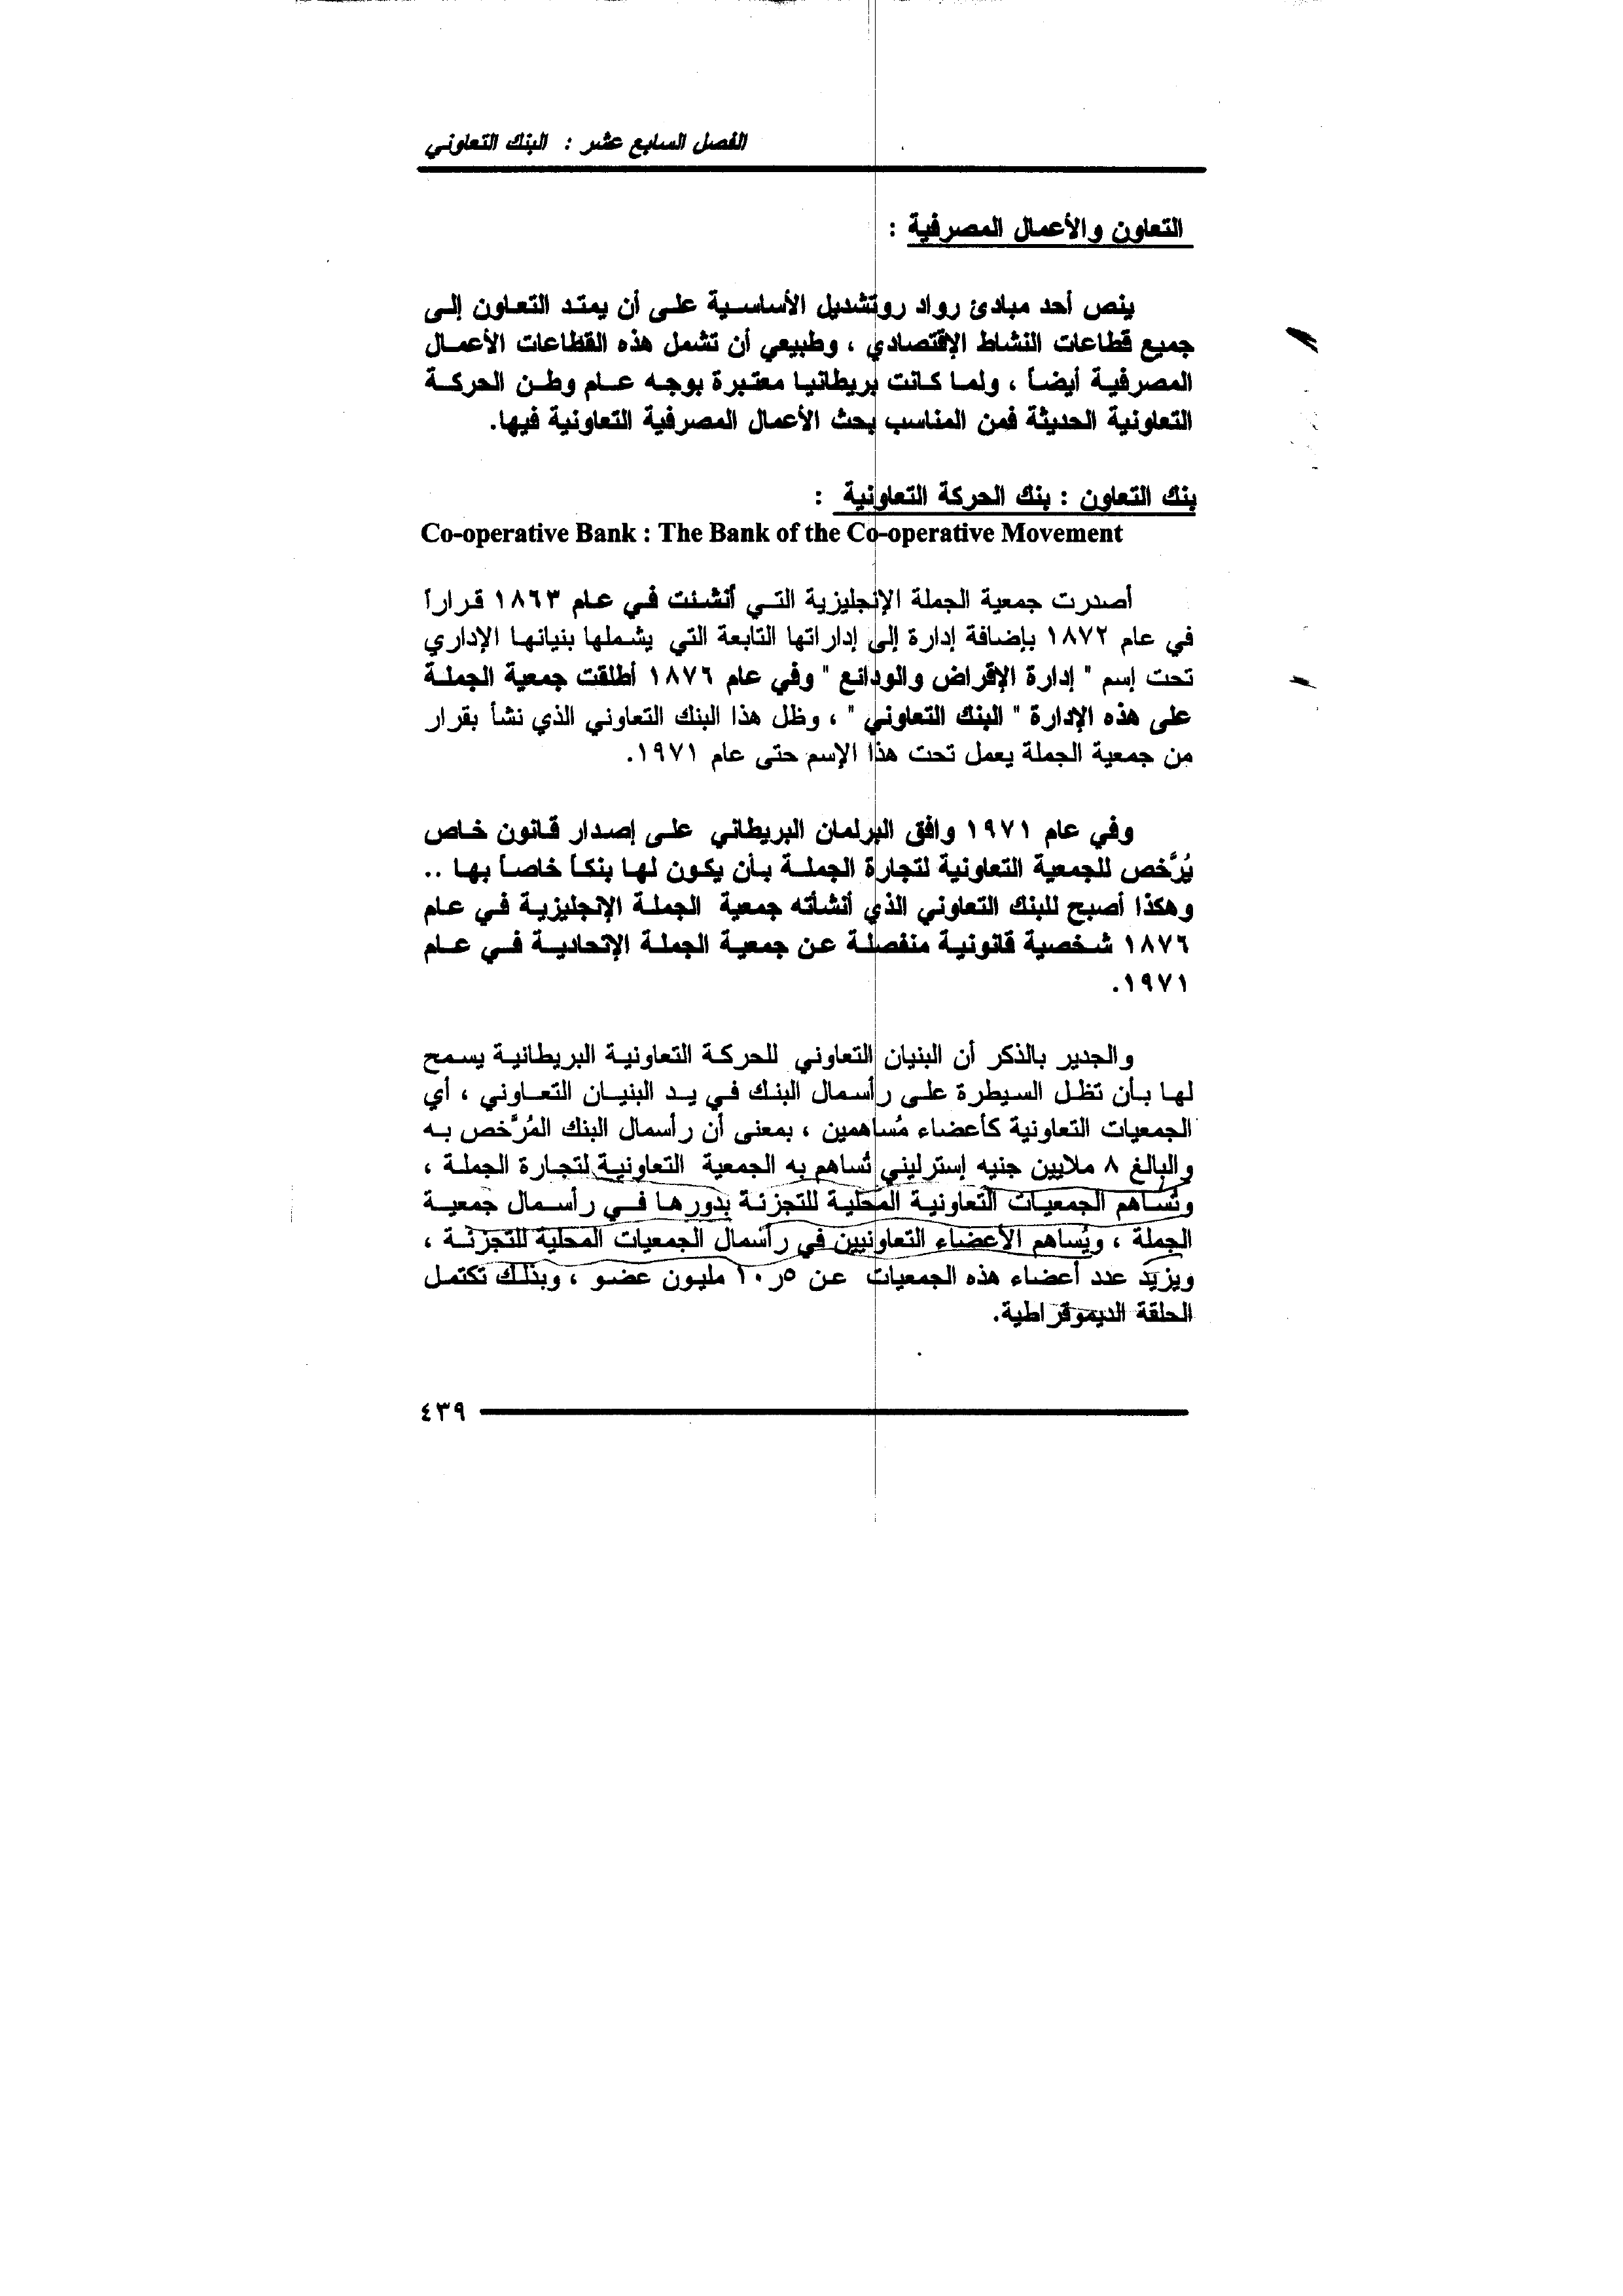 الفصل السابع عشر : البنك التعاوني
التعاون والأعمال المصرفية :
ينص أحد مبادئ رواد روتشديل الأساسية على أن يمتد التعاون إلى
جميع قطاعات النشاط الإقتصادي ، وطبيعي أن تشمل هذه القطاعات الأعمال
المصرفية أيضاً ، ولما كانت بريطانيا معتبرة بوجه عام وطن الحركة
التعاونية الحديثة فمن المناسب بحث الأعمال المصرفية التعاونية فيها.
بنك التعاون : بنك الحركة التعاونية :
Co-operative Bank : The Bank of the Co-operative Movement
أصدرت جمعية الجملة الإنجليزية التي أنشئت في عام ١٨٦٣ قراراً
في عام ١٨٧٢ بإضافة إدارة إلى إداراتها التابعة التي يشملها بنيانها الإداري
تحت إسم " إدارة الإقراض والودائع " وفي عام ١٨٧٦ أطلقت جمعية الجملة
على هذه الإدارة " البنك التعاوني " ، وظل هذا البنك التعاوني الذي نشأ بقرار
من جمعية الجملة يعمل تحت هذا الإسم حتى عام ١٩٧١.
وفي عام ١٩٧١ وافق البرلمان البريطاني على إصدار قانون خاص
يُرَّخص للجمعية التعاونية لتجارة الجملة بأن يكون لها بنكاً خاصاً بها ..
وهكذا أصبح للبنك التعاوني الذي أنشأته جمعية الجملة الإنجليزية في عام
١٨٧٦ شخصية قانونية منفصلة عن جمعية الجملة الإتحادية في عام
١٩٧١.
والجدير بالذكر أن البنيان التعاوني للحركة التعاونية البريطانية يسمح
لها بأن تظل السيطرة على رأسمال البنك في يد البنيان التعاوني ، أي
الجمعيات التعاونية كأعضاء مُساهمين ، بمعنى أن رأسمال البنك المُرَّخص به
والبالغ ٨ ملايين جنيه إسترليني تُساهم به الجمعية التعاونية لتجارة الجملة ،
وتُساهم الجمعيات التعاونية المحلية للتجزئة بدورها في رأسمال جمعية
الجملة ، ويُساهم الأعضاء التعاونيين في رأسمال الجمعيات المحلية للتجزئة ،
ويزيد عدد أعضاء هذه الجمعيات عن ٥ر١٠ مليون عضو ، وبذلك تكتمل
الحلقة الديموقراطية.
٤٣٩